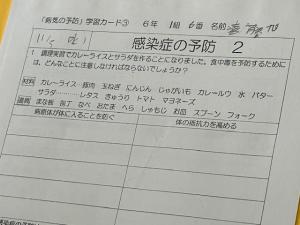 （病気の予防）学習カード③ 6年 1組 6番 名前
感染症の予防 2
1 調理実習でカレーライスとサラダを作ることになりました。食中毒を予防するために
は、どんなことに注意しなければならないでしょうか？
材料 カレーライス…豚肉 玉ねぎ にんじん じゃがいも カレールウ 水 バター
サラダ………レタス きゅうり トマト マヨネーズ
道具 まな板 包丁 なべ おたま へら しゃもじ お皿 スプーン フォーク
病原体が体に入ることを防ぐ 体の抵抗力を高める
感染症の予防